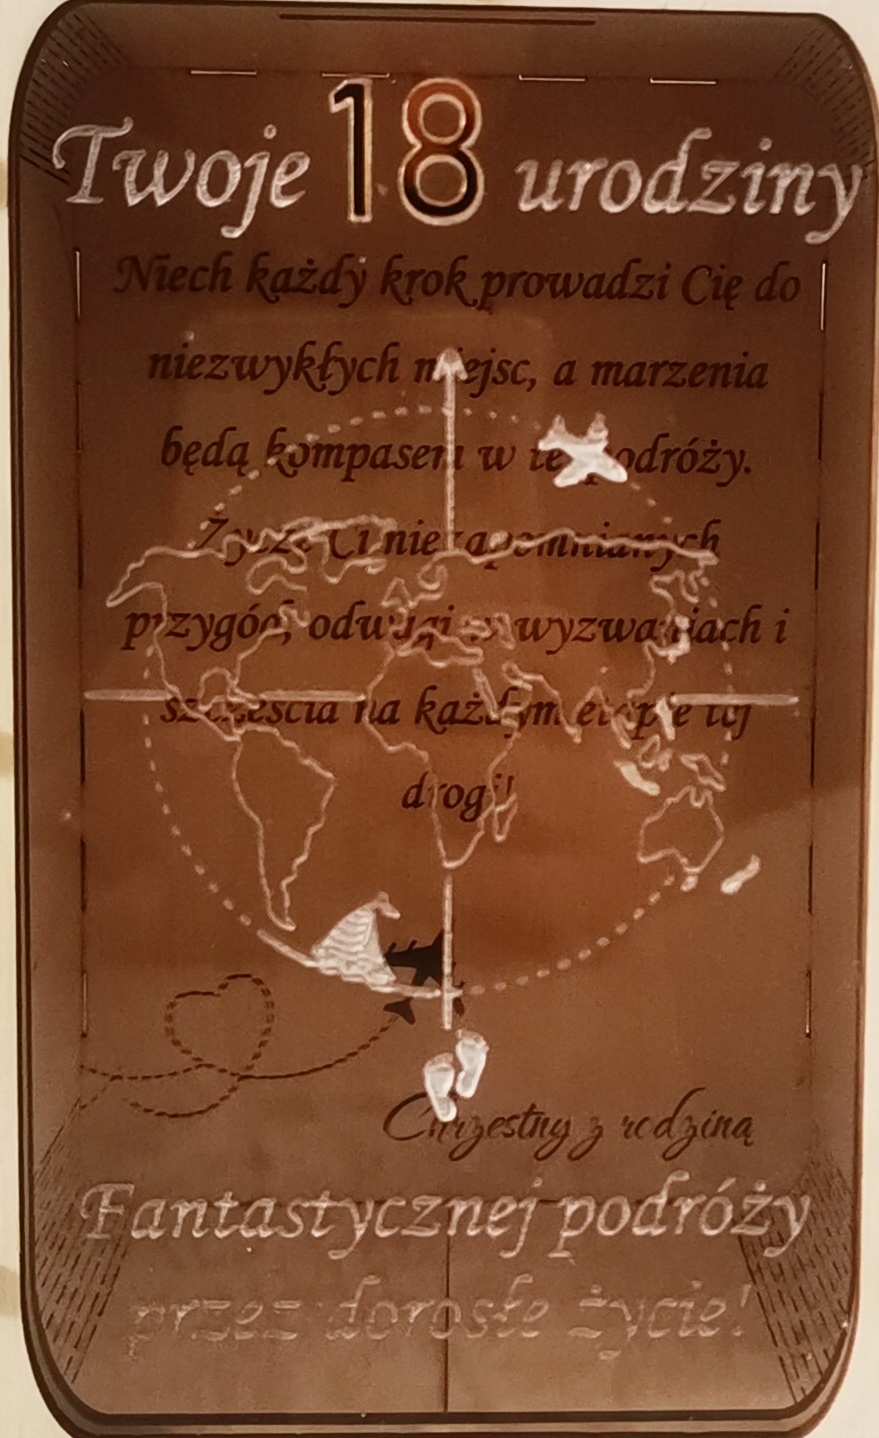 Twoje 18 urodziny
Niech każdy krok prowadzi Cię do
niezwykłych miejsc, a marzenia
będą kompasem w tej podróży.
Życzę Ci niezapomnianych
przygód, odwagi w wyzwaniach i
szczęścia na każdym etapie tej
drogi!
Chrzestny z rodziną
Fantastycznej podróży
przez dorosłe życie!